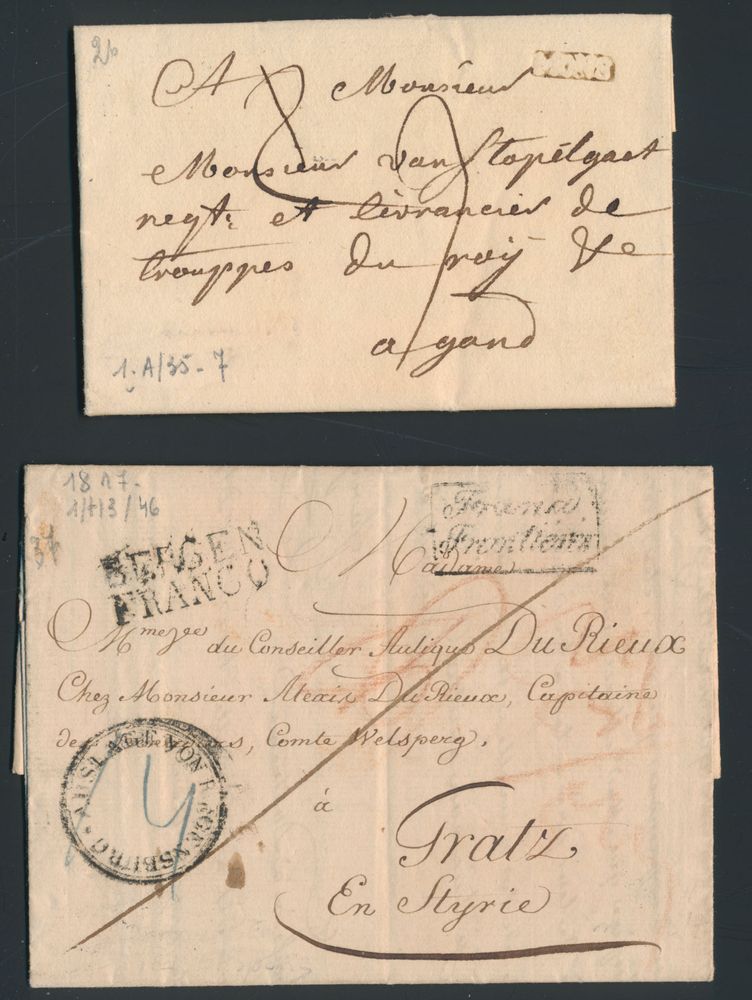 26
A Monsieur MONS
Monsieur van Stopélgaet
negt: et livrancier de
trouppes du roij &e
a gand
1.A/35-7
1817-
1/f/3/46
34
BERGEN
FRANCO
Franco
Frontieres
Madame
Mme Vve du Conseiller Aulique Du Rieux
Chez Monsieur Alexis Du Rieux, Capitaine
Comte Welsperg.
AUSLAGE VON REGENSBURG
à
Gratz
En Styrie